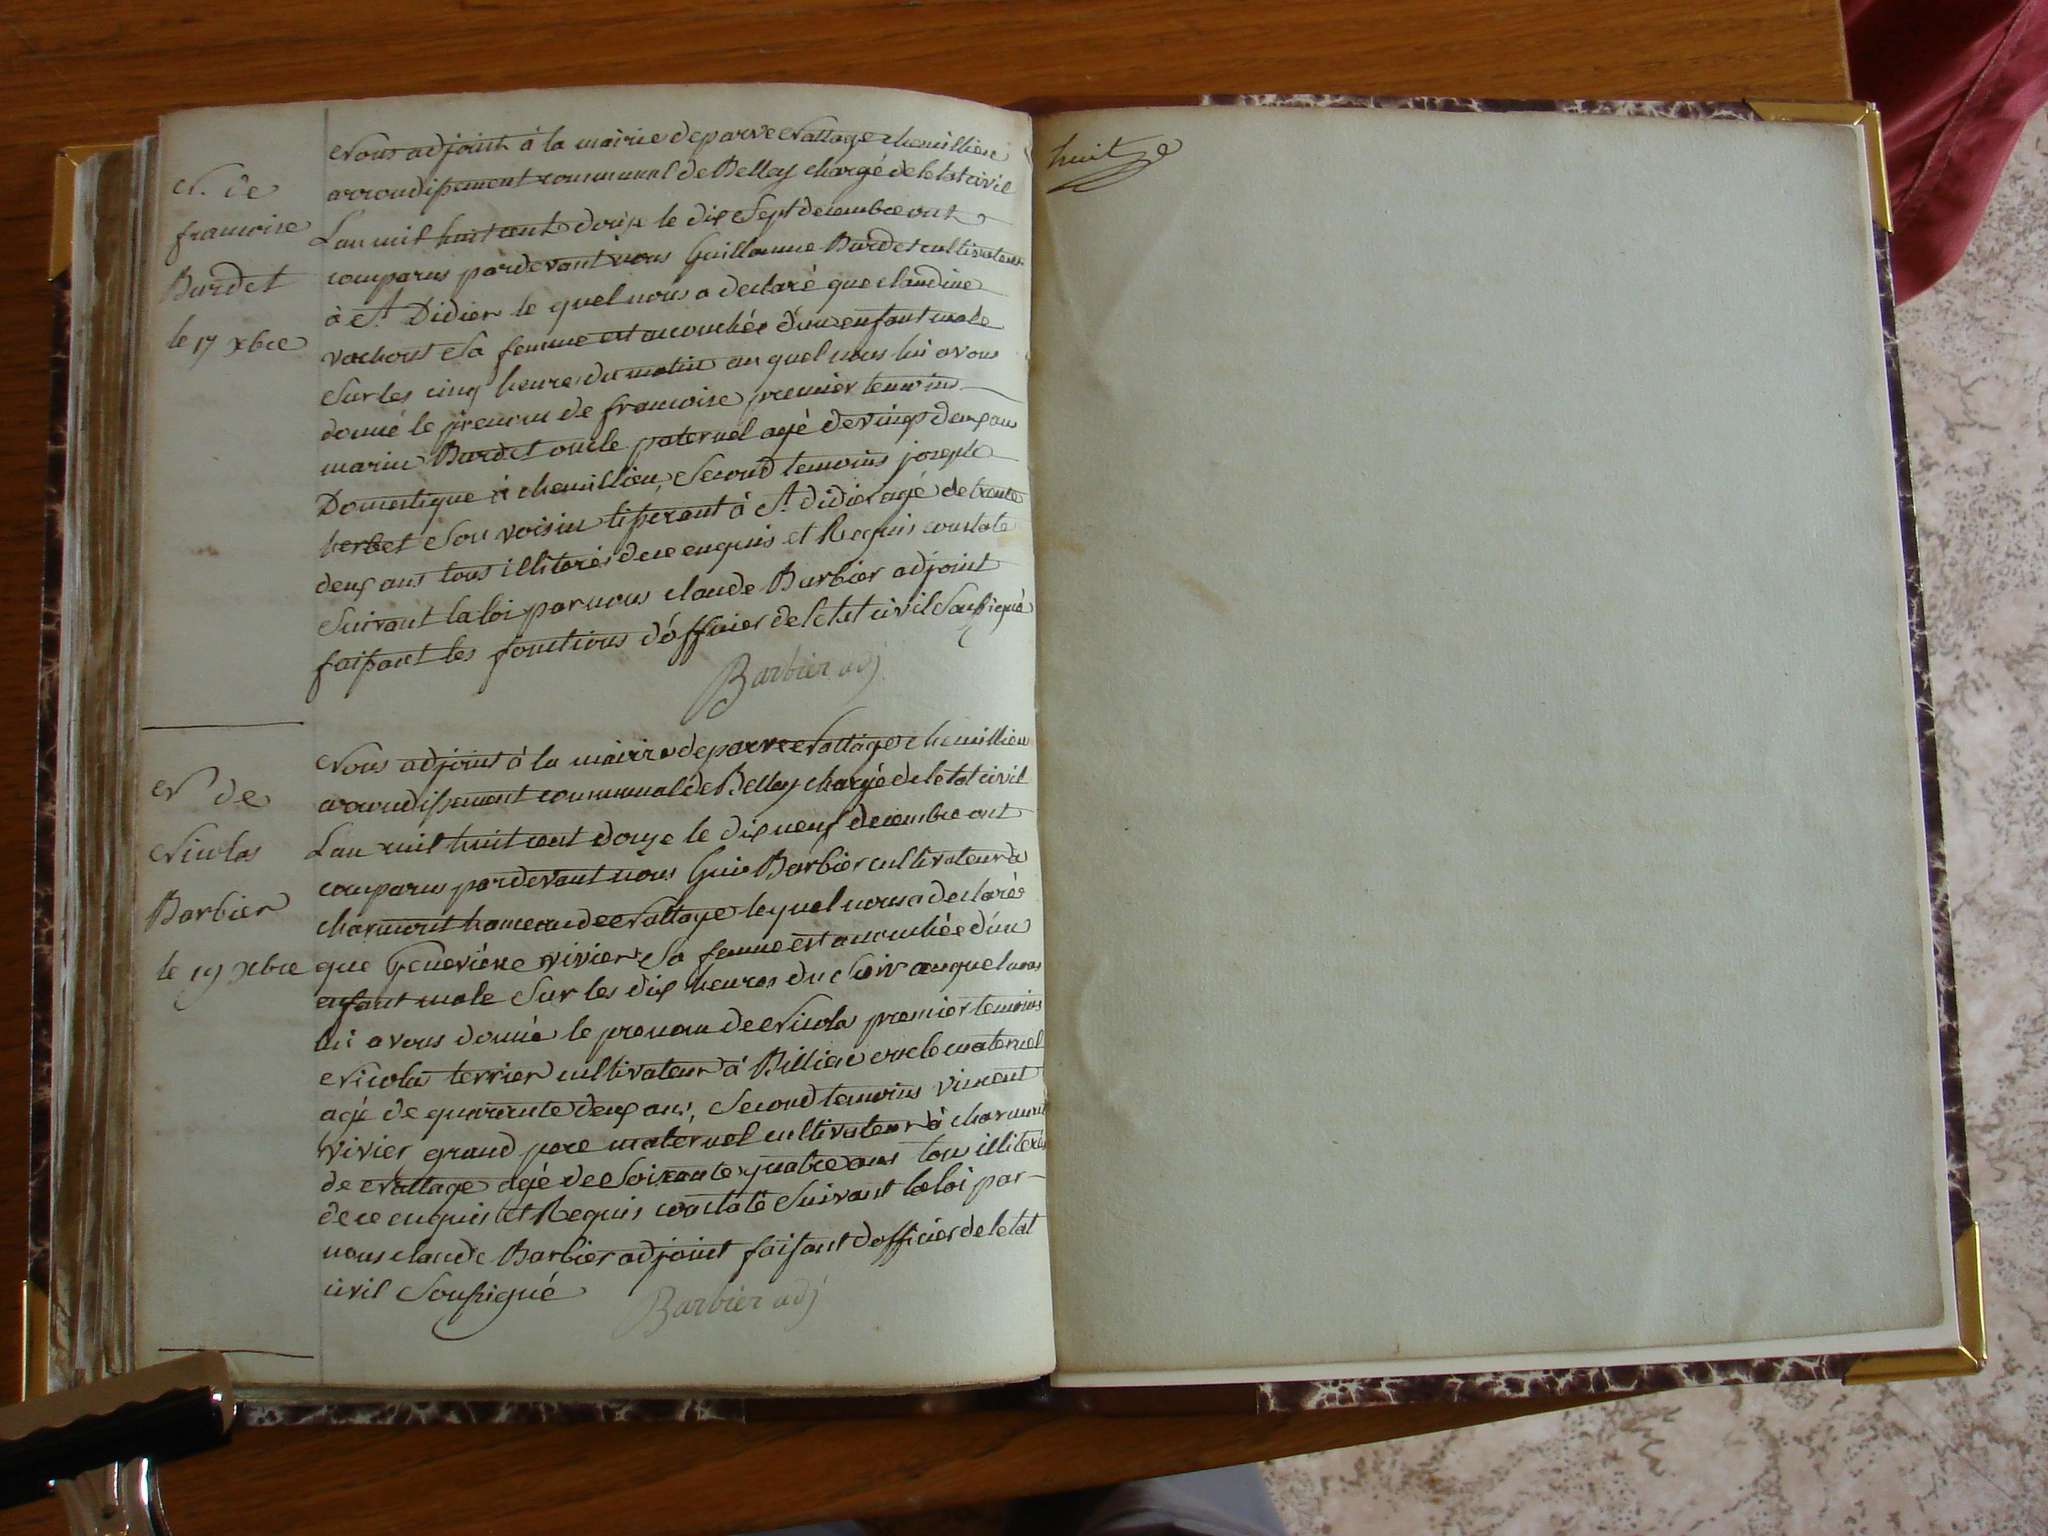 N. de
francoise
Burdet
le 17 xbre
Nous adjoint à la mairie de parve Nattage chemillieu
arrondissement communal de Belley chargé de letat civil
Lan mil huit cent douze le dix sept decembre ont
comparus pardevant nous Guillaume Burdet cultivateur
à St Didier le quel nous a declaré que claudine
vachout Sa femme est acouchée d'un enfant male
Sur les cinq heures du matin au quel nous lui avons
donné le prenom de francoise premier temoins
marin Burdet oncle paternel agé de vingt deux ans
Domestique à chemillieu, Second temoins joseph
berbet Son voisin tisserant à St didier agé de trante
deux ans tous illiterés de ce enquis et Requis constaté
Suivant la loi par nous claude Barbier adjoint
faissant les fonctions d'officier de letat civil Soussigné
Barbier adj
Ne de
Nicolas
Barbier
le 19 xbre
Nous adjoint à la mairie de parve Nattage chemillieu
arrondissement communal de Belley chargé de letat civil
Lan mil huit cent douze le dix neuf decembre ont
comparus pardevant nous Guie Barbier cultivateur à
charmont hameau de Nattage lequel nous a declaré
que Genevieve vivier Sa femme est acouchée d'un
enfant male Sur les dix heures du Soir auquel nous
lui avons donné le prenom de Nicola premier temoins
Nicola terrier cultivateur à Billieu oncle maternel
agé de quarante deux ans, Second temoins vincent
vivier grand pere maternel cultivateur à charmont
de Nattage agé de Soixante quatre ans tous illiterés
de ce enquis et Requis constaté Suivant la loi par
nous claude Barbier adjoint faisant d'officier de letat
civil Soussigné
Barbier adj
huit